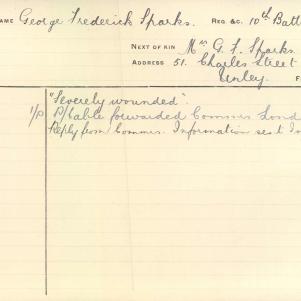 NAME George Frederick Sparks. REG. &c. 10th Batt
NEXT OF KIN Mrs G. F. Sparks
ADDRESS 51. Charles Street
Unley.
"Severely wounded".
1/P P/cable forwarded Commrs Lond
Reply from Commrs. Information sent In